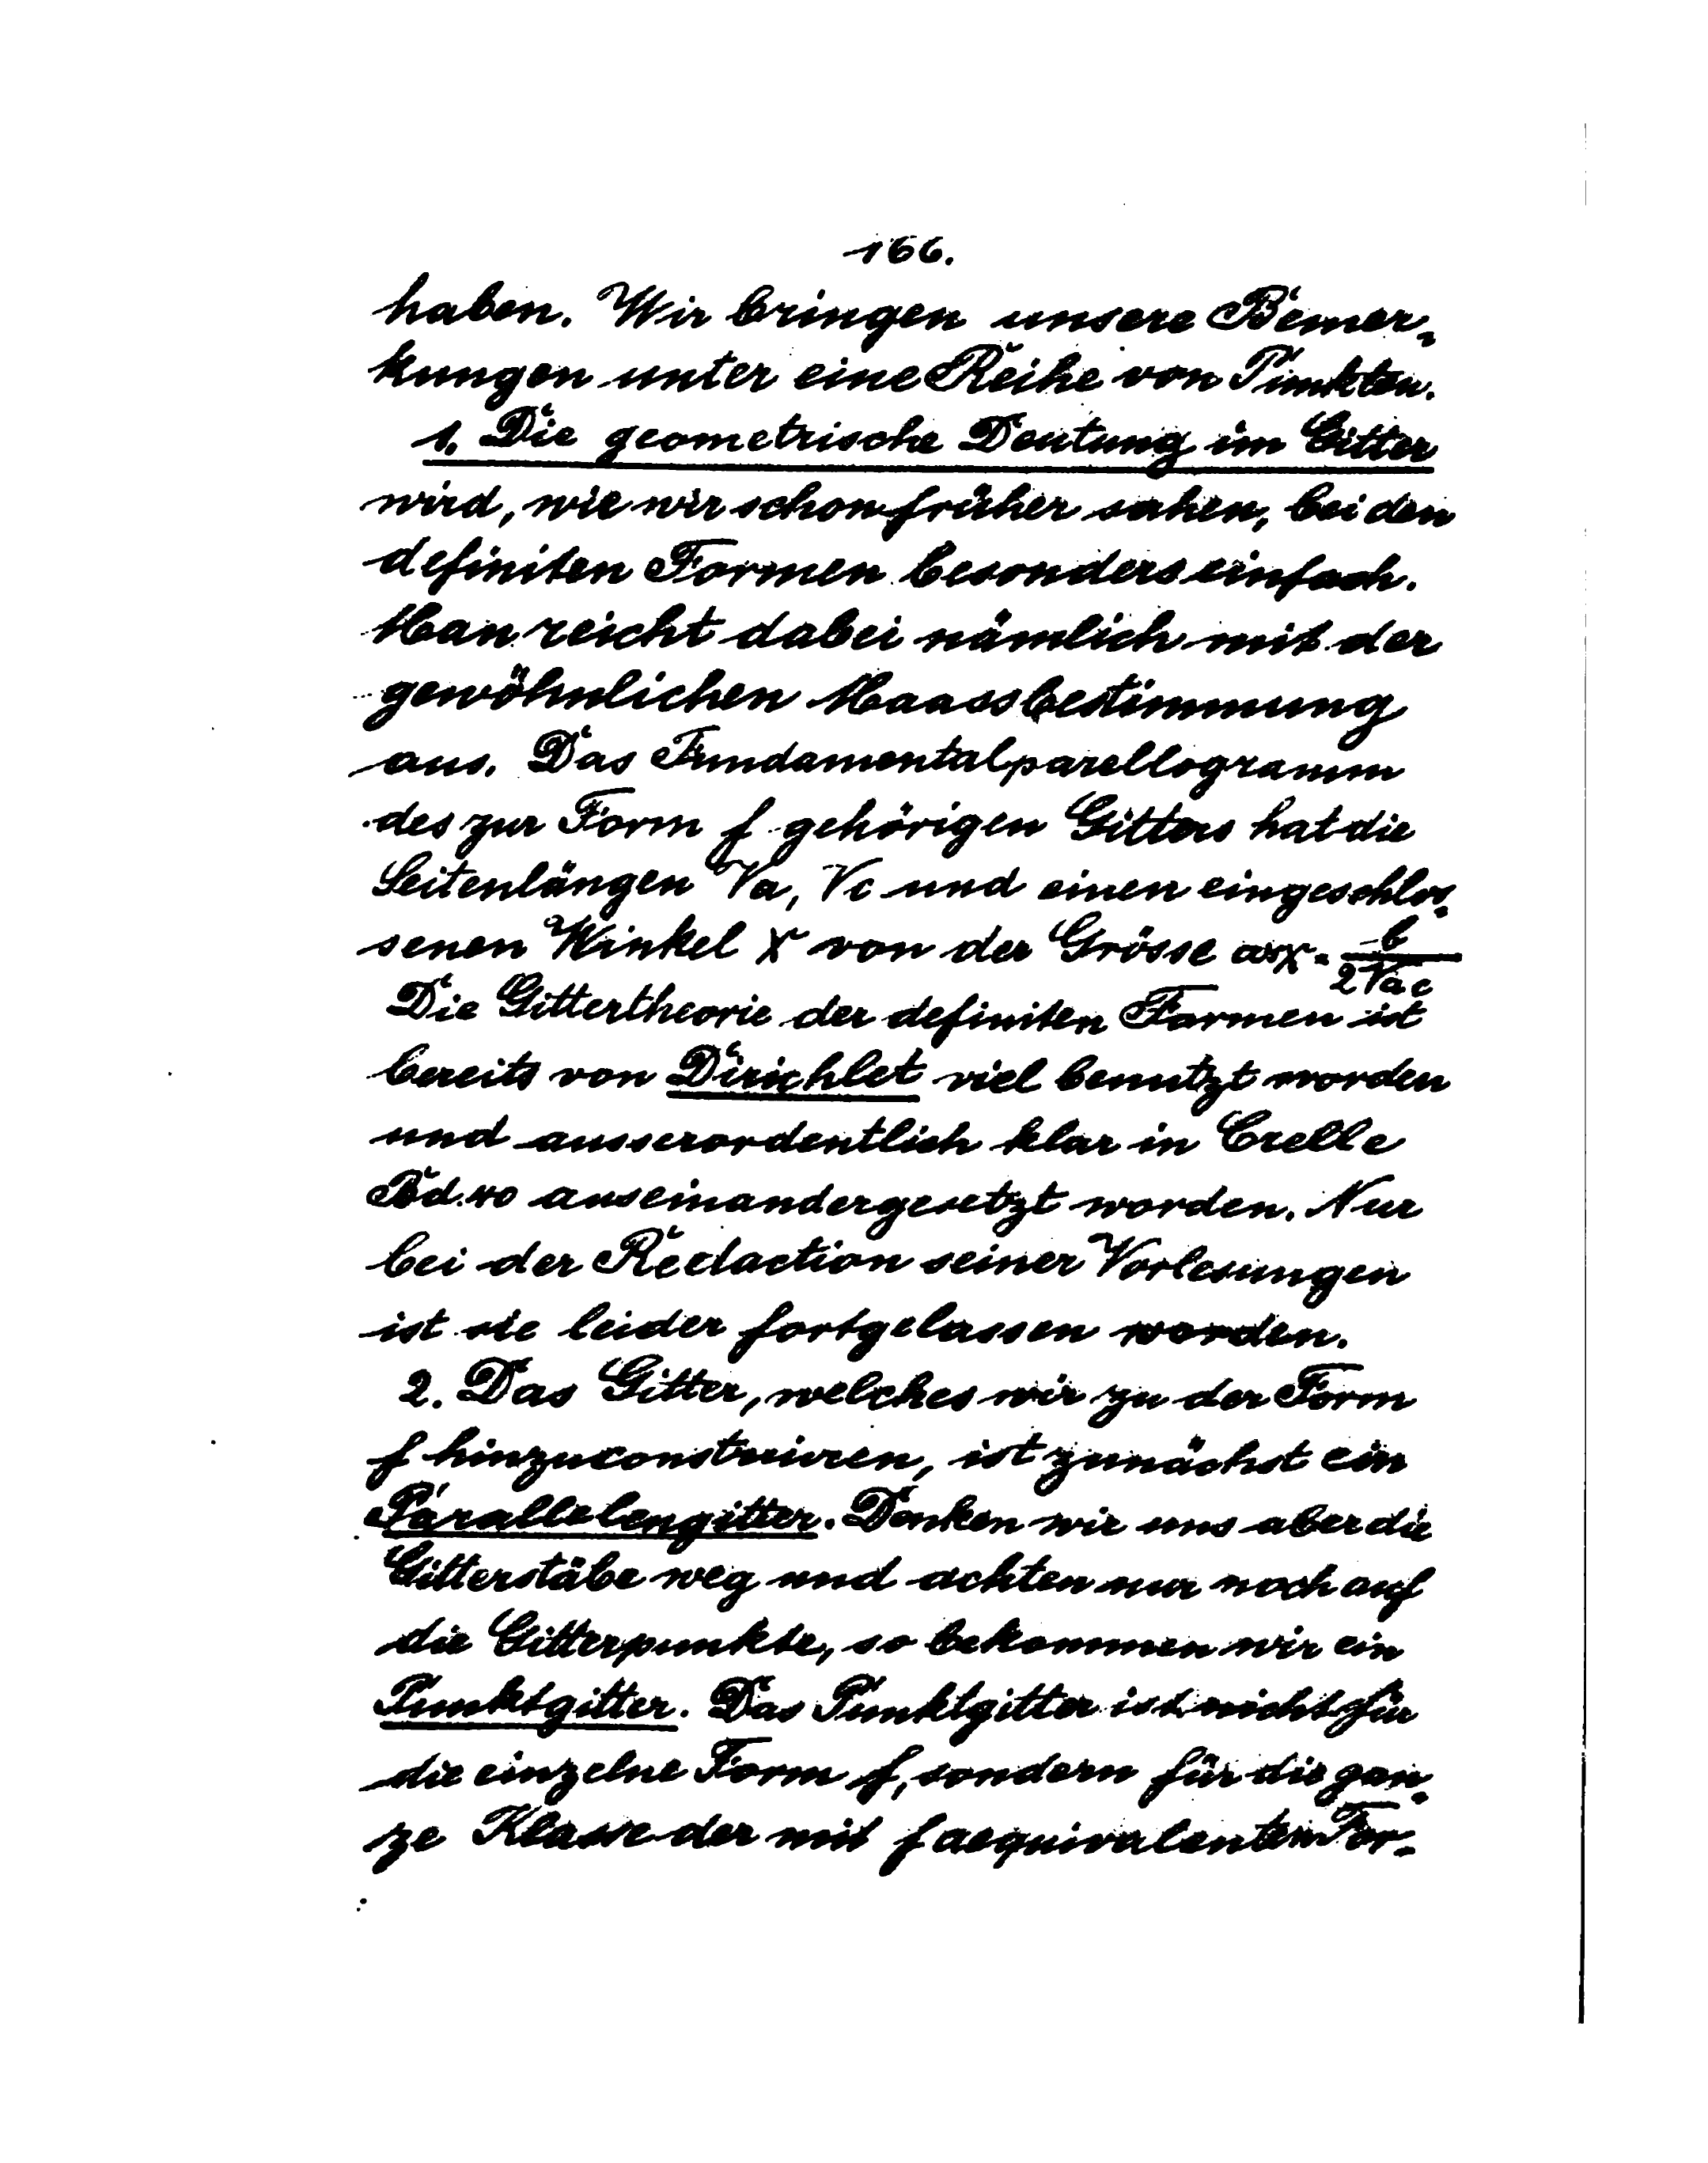 166.
haben. Wir bringen unsere Bemer-
kungen unter eine Reihe von Punkten.
1. Die geometrische Deutung im Gitter
wird, wie wir schon früher sahen, bei den
definiten Formen besonders einfach.
Man reicht dabei nämlich mit der
gewöhnlichen Maassbestimmung
aus. Das Fundamentalparellogramm
des zur Form f gehörigen Gitters hat die
Seitenlängen √a, √c und einen eingeschlos-
senen Winkel χ von der Grösse cos χ = b / 2√ac
Die Gittertheorie der definiten Formen ist
bereits von Dirichlet viel benutzt worden
und ausserordentlich klar in Crelle
Bd. 40 auseinandergesetzt worden. Nur
bei der Redaction seiner Vorlesungen
ist sie leider fortgelassen worden.
2. Das Gitter, welches wir zu der Form
f hinzuconstruiren, ist zunächst ein
Parallelengitter. Denken wir uns aber die
Gitterstäbe weg und achten nur noch auf
die Gitterpunkte, so bekommen wir ein
Punktgitter. Das Punktgitter ist nicht für
die einzelne Form f, sondern für die gan-
ze Klasse der mit f aequivalenten For-